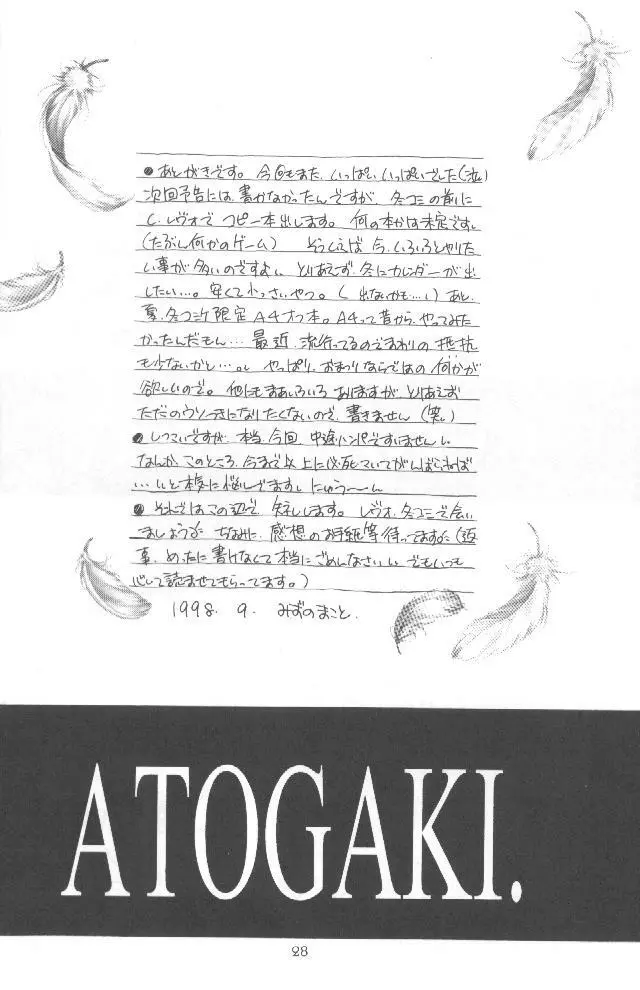 ●あとがきです。今回もまた、いっぱいいっぱいでした(泣)
次回予告には、書かなかったんですが、冬コミの前に
C.レヴォで コピー本出します。何の本かは未定です。
(たぶん何かのゲーム) そういえば今、いろいろとやりた
い事が多いのですよ。とりあえず、冬にカレンダーが出
したい…。安くて小っさいやつ。(出ないかも…。)あと、
夏、冬コミケ限定 A4オフ本。A4って昔から、やってみた
かったんだもん… 最近、流行ってるのでまわりの抵抗
も少ないかと…。やっぱり、おまつりならではの何かが
欲しいので。他にもまあいろいろ ありますが、とりあえず
ただのウソつきになりたくないので、書きません(笑)
●しつこいですが、本当、今回、中途ハンパですいません
なんか、このところ、今まで以上に
…と本気に悩んでます。にゅう〜〜ん
●それではこの辺で、失礼します。レヴォ、冬コミで会い
ましょう ちなみに、感想のお手紙等待ってます(返
事、めったに書けなくて本当にごめんなさい でもいつも
心して読ませてもらってます。)
1998. 9. みずのまこと.
ATOGAKI.
28